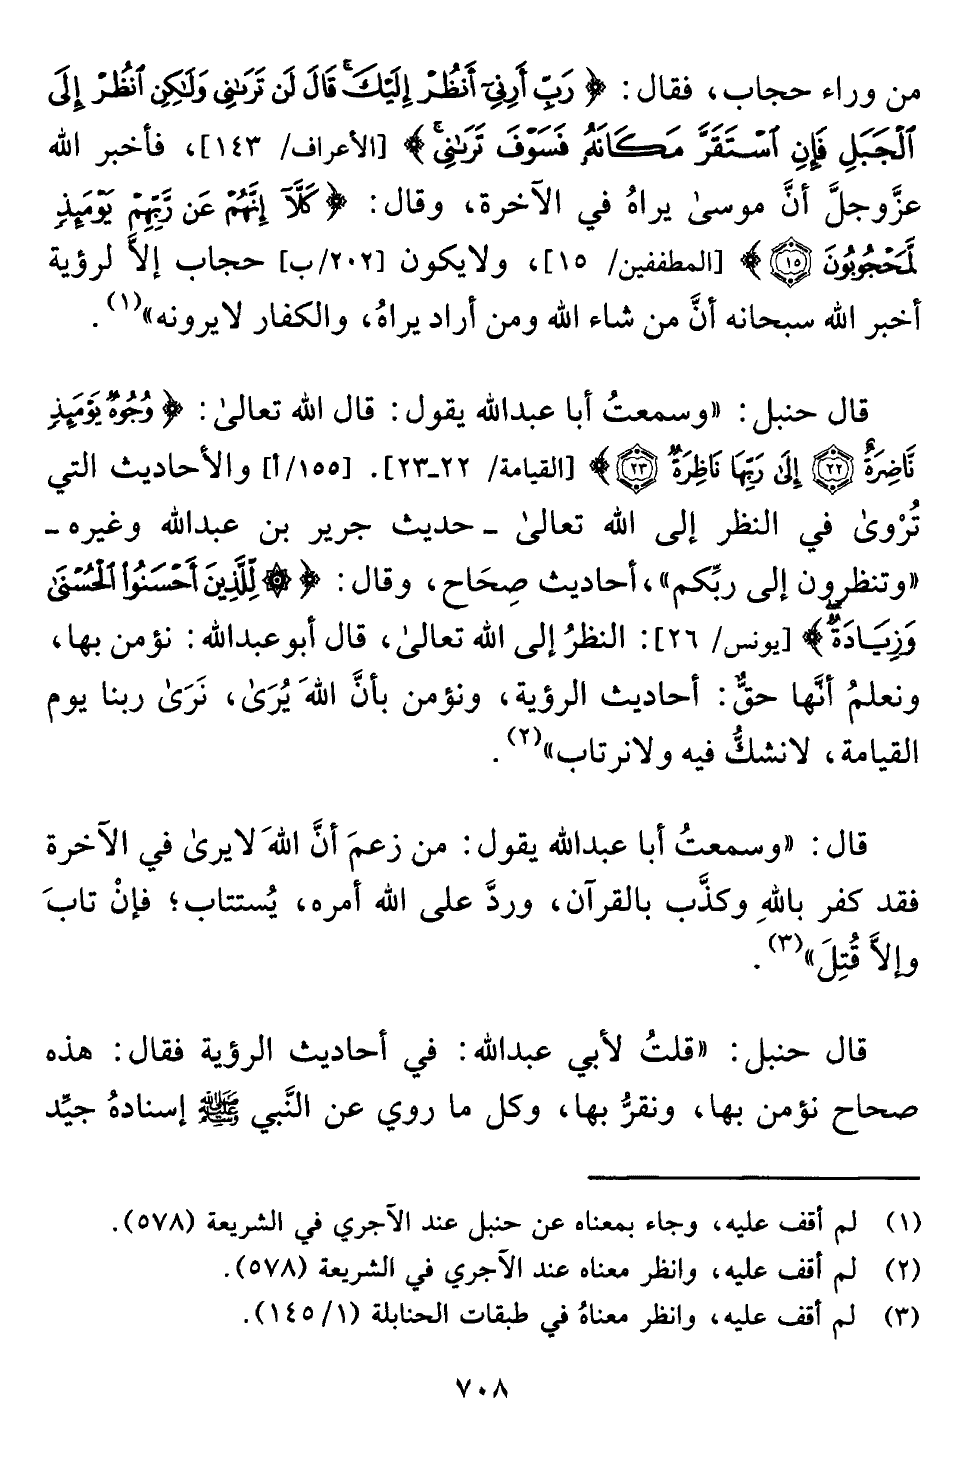 من وراء حجاب، فقال: ﴿رَبِّ أَرِنِيٓ أَنظُرۡ إِلَيۡكَۚ قَالَ لَن تَرَىٰنِي وَلَٰكِنِ ٱنظُرۡ إِلَى
ٱلۡجَبَلِ فَإِنِ ٱسۡتَقَرَّ مَكَانَهُۥ فَسَوۡفَ تَرَىٰنِيۚ﴾ [الأعراف/ ١٤٣]، فأخبر الله
عزَّوجلَّ أنَّ موسىٰ يراهُ في الآخرة، وقال: ﴿كَلَّآ إِنَّهُمۡ عَن رَّبِّهِمۡ يَوۡمَئِذٖ
لَّمَحۡجُوبُونَ ١٥﴾ [المطففين/ ١٥]، ولايكون [٢٠٢/ب] حجاب إلاَّ لرؤية
أخبر الله سبحانه أنَّ من شاء الله ومن أراد يراهُ، والكفار لايرونه»(١).
قال حنبل: «وسمعتُ أبا عبدالله يقول: قال الله تعالىٰ: ﴿وُجُوهٞ يَوۡمَئِذٖ
نَّاضِرَةٌ ٢٢ إِلَىٰ رَبِّهَا نَاظِرَةٞ ٢٣﴾ [القيامة/ ٢٢ـ٢٣]. [١٥٥/أ] والأحاديث التي
تُرْوىٰ في النظر إلى الله تعالىٰ ـ حديث جرير بن عبدالله وغيره ـ
«وتنظرون إلى ربِّكم»،أحاديث صِحَاح، وقال: ﴿۞لِّلَّذِينَ أَحۡسَنُواْ ٱلۡحُسۡنَىٰ
وَزِيَادَةٞۖ﴾ [يونس/ ٢٦]: النظرُ إلى الله تعالىٰ، قال أبوعبدالله: نؤمن بها،
ونعلمُ أنَّها حقٌّ: أحاديث الرؤية، ونؤمن بأنَّ اللهَ يُرَىٰ، نَرَىٰ ربنا يوم
القيامة، لانشكُّ فيه ولانرتاب»(٢).
قال: «وسمعتُ أبا عبدالله يقول: من زعمَ أنَّ اللهَ لايرىٰ في الآخرة
فقد كفر باللهِ وكذَّب بالقرآن، وردَّ على الله أمره، يُستتاب؛ فإنْ تابَ
وإلاَّ قُتِلَ»(٣).
قال حنبل: «قلتُ لأبي عبدالله: في أحاديث الرؤية فقال: هذه
صحاح نؤمن بها، ونقرُّ بها، وكل ما روي عن النَّبي ﷺ إسنادهُ جيِّد
(١) لم أقف عليه، وجاء بمعناه عن حنبل عند الآجري في الشريعة (٥٧٨).
(٢) لم أقف عليه، وانظر معناه عند الآجري في الشريعة (٥٧٨).
(٣) لم أقف عليه، وانظر معناهُ في طبقات الحنابلة (١/ ١٤٥).
٧٠٨